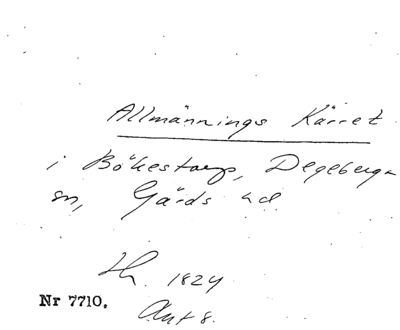 Allmännings Kärret
i Bökestorp, Degeberga
sn, Gärds hd
Lh. 1824
Nr 7710.
Akt 8.